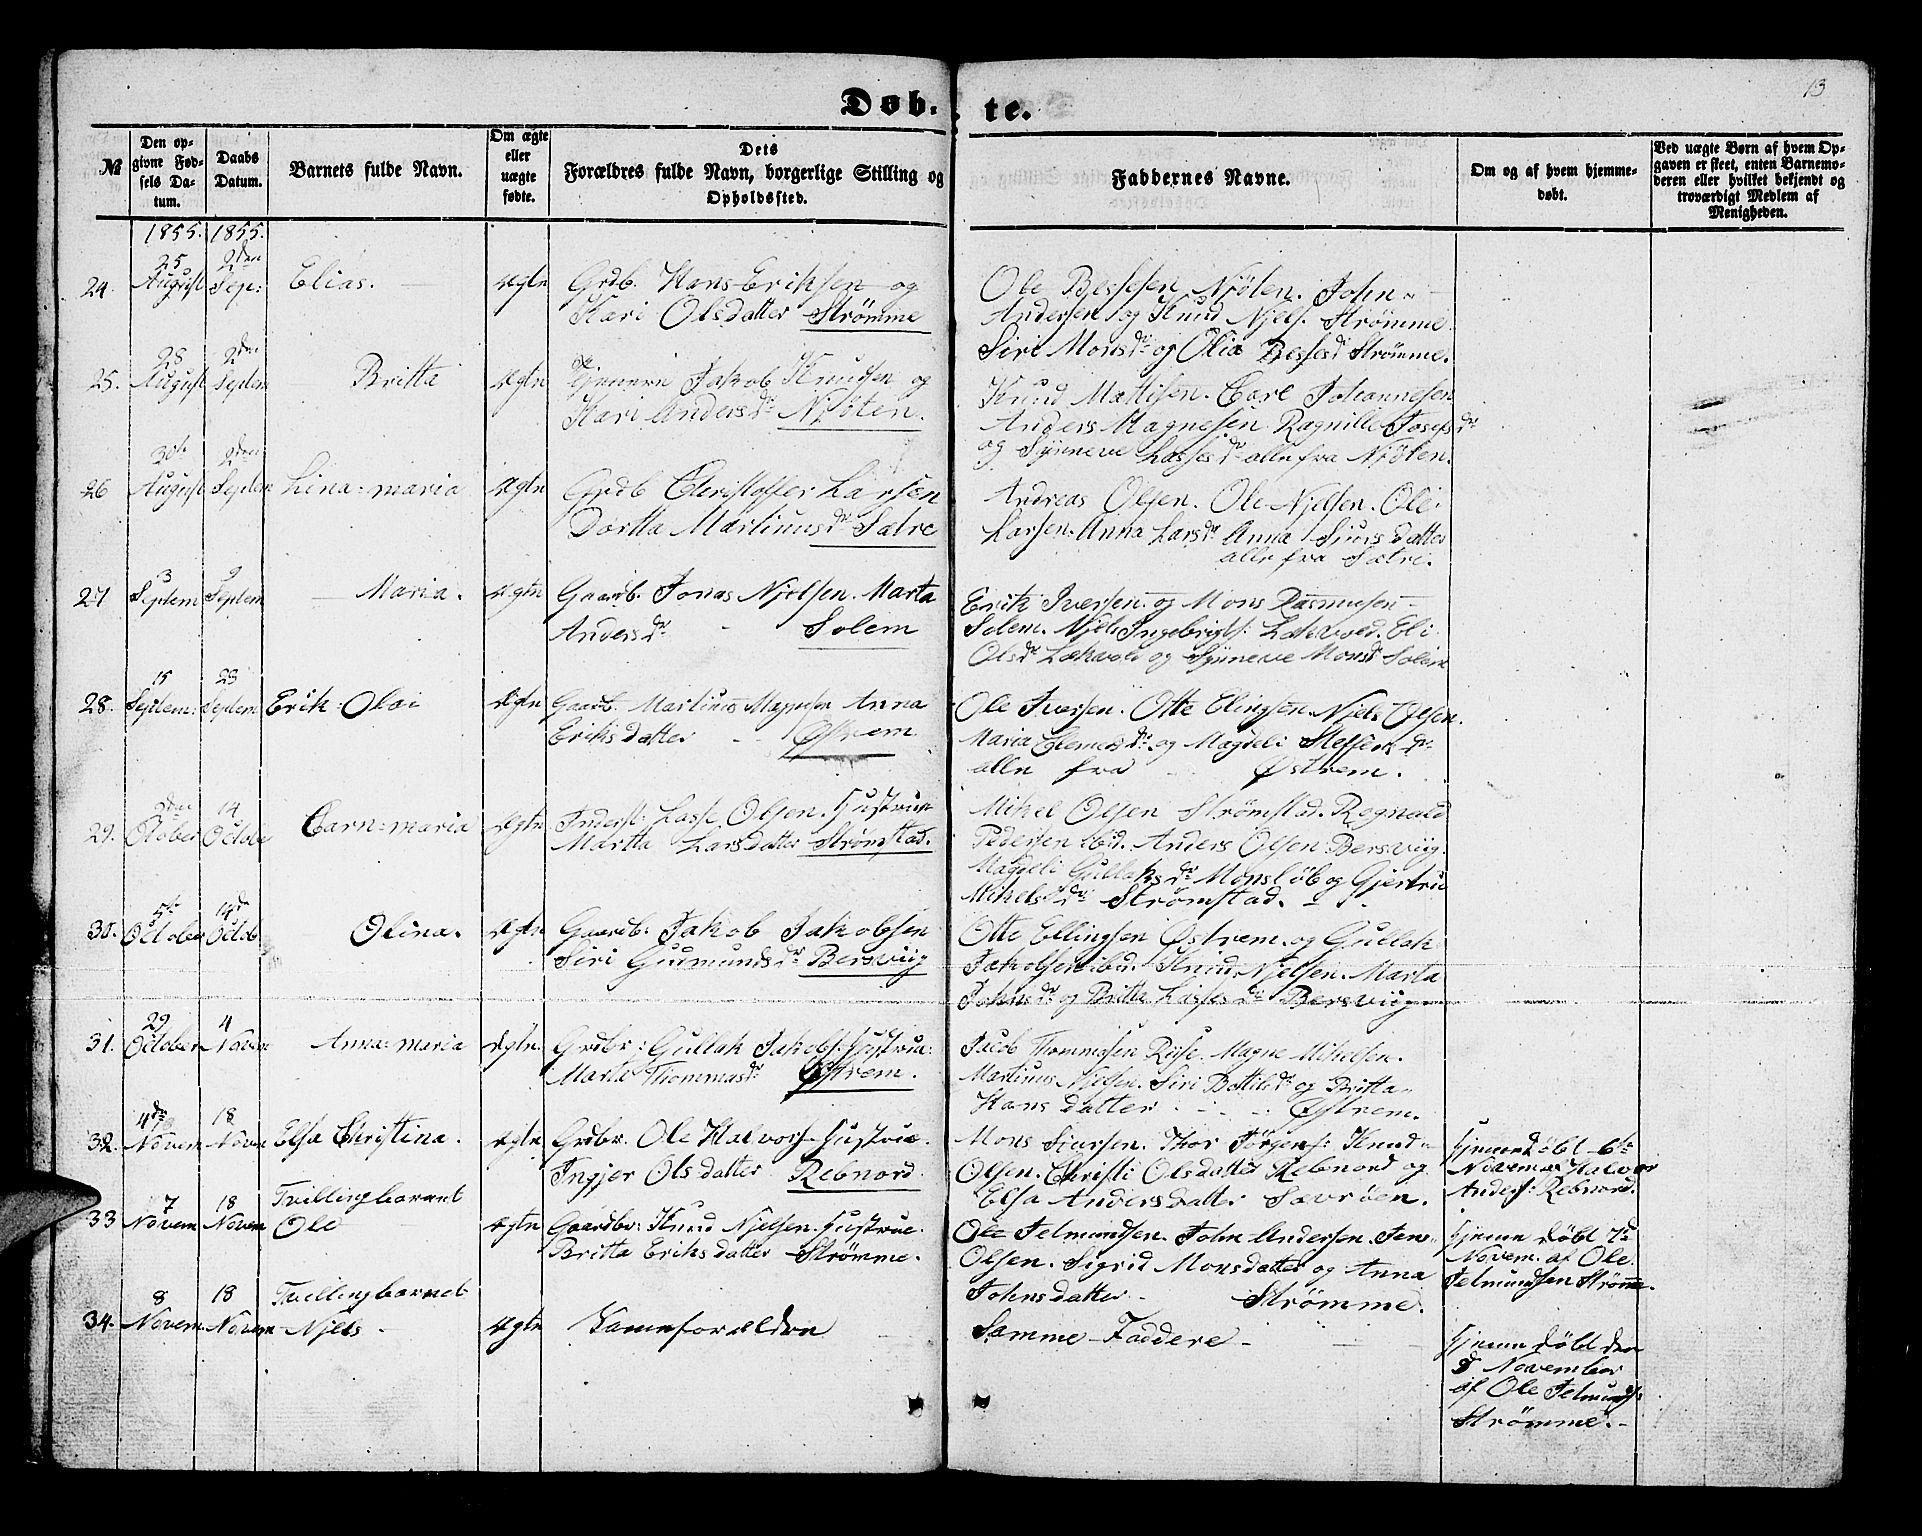 13
Døb- te.
№
Den op-
givne Fød-
sels Da-
tum.
Daabs
Datum.
Barnets fulde Navn.
Om ægte
eller
uægte
fødte.
Dets
Forældres fulde Navn, borgerlige Stilling og
Opholdssted.
Faddernes Navne.
Om og af hvem hjemme-
døbt.
Ved uægte Børn af hvem Op-
gaven er skeet, enten Barnemo-
deren eller hvilket bekjendt og
troværdigt Medlem af
Menigheden.
1855. 1855.
24. 25 August 2den Sep: Elias. ægte Grdb. Hans Eriksen og
Kari Olsdatter Strømme
Ole Bessesen Njøten. John
Andersen og Knud Njels. Strømme
Siri Monsdr og Olia Bessesd Strømme.
25. 28 August 2den Septem Britta ægte Jakob Knudsen og
Kari Andersdr Njøten.
Knud Mattisen. Carl Johannesen
Anders Magnesen Ragnille Josefsdr
og Synneve Lassesdr alle fra Njøten.
26 30te August 2den Septem Lina=maria ægte Grdb Christoffer Larsen
Dortta Martinusdr Sætre
Andreas Olsen. Ole Njelsen. Ole
Larsen. Anna Larsdr Anna Sjursdatter
alle fra Sætri.
27 3 Septem 9 Septem Maria. ægte Gaardb. Jonas Njelsen. Marta
Andersdr Solem
Erik Iversen og Mons Rasmusen
Solem. Njels Ingebrigts: Lækvold. Eli
Olsdr Lækvold og Synneve Monsdr Solem
28. 15 Septem: 23 Septem Erik: Olai ægte Gaardb. Martinus Magnesen Anna
Eriksdatter Østrem
Ole Iversen. Otte Elingsen. Njels Olsen.
Maria Clemetsdr og Magdeli Steffensdr
alle fra Østrem.
29. 2den October 14 Octobe Carn=maria ægte Inderst: Lasse Olsen. Hustrue
Martta Larsdatter Strømstad.
Mikel Olsen Strømstad. Rognald
Pedersen ibid. Anders Olsen Bersviig.
Magdeli Gullaksdr Monsløb og Gjertrue
Mikelsdr Strømstad.
30. 5te October 14de Octob Olina. ægte Gaardb: Jakob Jakobsen
Siri Gudmundsdr Bersviig
Otte Ellingsen Østrem. og Gullak
Jakobsen ibid. Knud Njelsen. Marta
Johnsdr og Britta Lassesdr Bersviig
31. 29 October 4 Novem Anna=maria ægte. Grdbr: Gullak Jakobs: Hustrue:
Marta Thommasdr Østrem.
Jacob Thommasen Riise. Magne Mikelsen.
Martinus Njelsen. Siri Bottilsdr og Britta
Hans datter Østrem.
32. 4de Novem 18 Novem Elsa Christina. ægte Grdbr. Ole Halvors: Hustrue.
Ingjer Olsdatter Rebnord
Mons Sjursen. Thor Jørgens: Knud
Olsen. Christi Olsdatter Rebnord og
Elsa Andersdatter Sævrøen.
Hjemmedøbt 6te
November Halvor
Anders: Rebnord.
33 7 Novem 18 Novem Tvillingbarnet
Ole ægte Gaardbr: Knud Njelsen. Hustrue
Britta Eriksdatter Strømme.
Ole Jelmundsen. John Andersen. Jens
Olsen. Sigrid Monsdatter og Anna
Johnsdatter Strømme.
Hjemme døbt 7de
Novem. af Ole
Jelmundsen Strømme.
34. 8 Novem 18 Novem Tvillingbarnet
Njels ægte Sammeforældre
Samme Faddere
Hjemmedøbt den
8 November
af Ole Jelmunds:
Strømme.